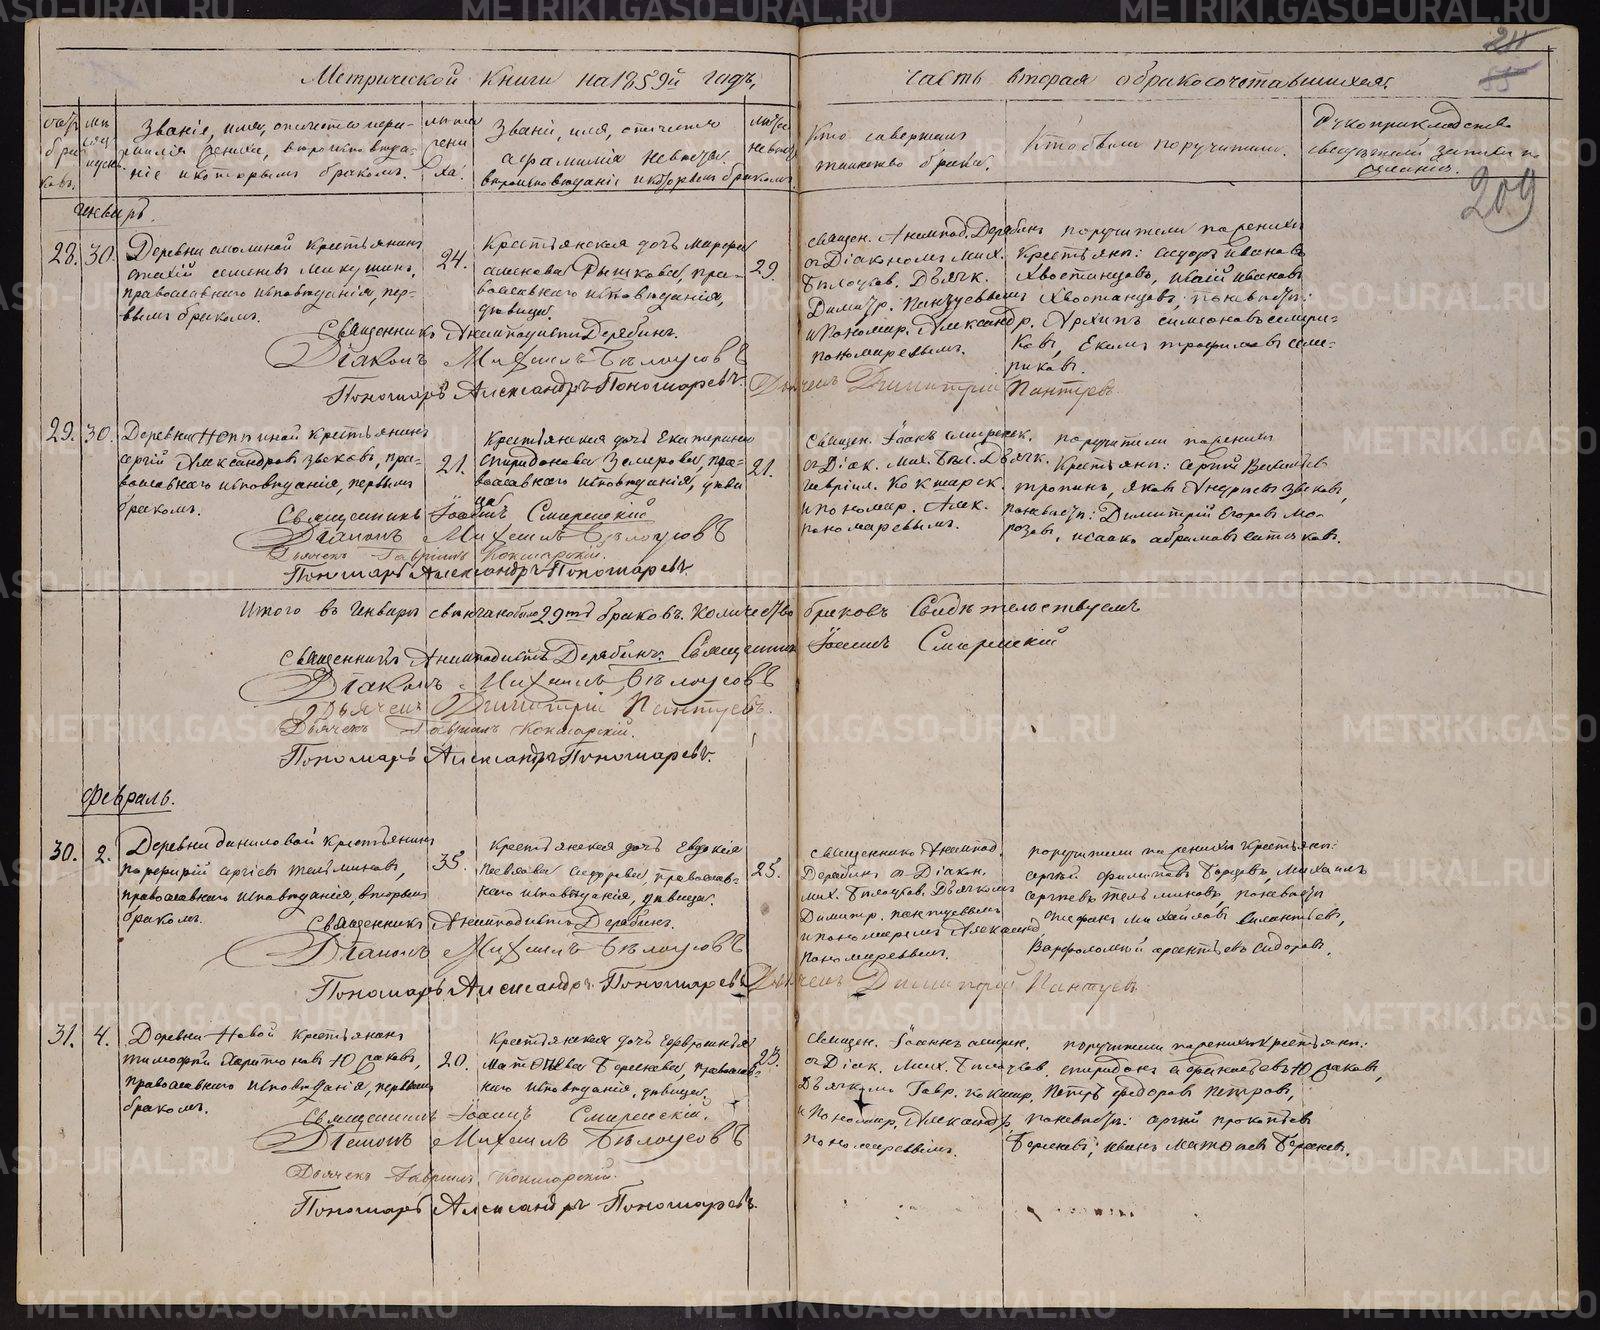 Метрической книги на 1859й годъ,
часть вторая о бракосочетавшихся.
211
55
209
Званіе, имя, отчество
жениха, вѣроисповѣда-
ніе и которымъ бракомъ.
Званіе, имя, отчество
и фамилія невѣсты
вѣроисповѣданіе и которымъ бракомъ.
Кто совершалъ
таинство брака.
Кто были поручители.
Рукоприкладство
свидѣтелей записи по
желанію.
Генварь.
28. 30.
Деревни Смолиной крестьянинъ
православнаго исповѣданія, пер-
вымъ бракомъ.
24.
Крестьянская дочь Марфа
Рычкова, пра-
вославнаго исповѣданія,
дѣвица.
29.
Священ. Анемпод. Дерябинъ
съ Діакономъ Мих.
Бѣлоусов. Дьячк.
Димитр. Пантуевымъ
и Пономар. Александр.
Пономаревымъ.
поручители по женихѣ
крестьян: Сидоръ Ивановъ
по невѣстѣ:
Архипъ Симеоновъ
Екимъ Трофимовъ
Священникъ Анемподистъ Дерябинъ.
Діаконъ Михаилъ Бѣлоусовъ
Дьячекъ Димитрій Пантуевъ
Пономарь Александръ Пономаревъ.
29. 30.
крестьянинъ
Сергій Александровъ Звѣковъ, пра-
вославнаго исповѣданія, первымъ
бракомъ.
21.
Крестьянская дочь Екатерина
Спиридонова пра-
вославнаго исповѣданія, дѣви
ца
21.
Священ. Іоанъ Смиренск.
съ Діак. Мих. Бѣл. Дьячк.
Гавріил. Кокшарск.
и пономар. Алек.
Пономаревымъ.
поручители по женихѣ
крестьян: Сергій
Яковъ Андреевъ Звѣковъ,
по невѣстѣ: Димитрій Егоровъ Мо-
розовъ, Исаакъ Абрамовъ
Священникъ Іоаннъ Смиренскій
Діаконъ Михаилъ Бѣлоусовъ
Дьячекъ Гавріилъ Кокшарскій.
Пономарь Александръ Пономаревъ.
Итого въ Генварѣ свѣнчано было 29ть браковъ. Количество браковъ свидѣтельствуемъ
Священникъ Анемподистъ Дерябинъ. Священникъ Іоаннъ Смиренскій
Діаконъ Михаилъ Бѣлоусовъ
Дьячекъ Димитрій Пантуевъ.
Дьячекъ Гавріилъ Кокшарскій.
Пономарь Александръ Пономаревъ.
Февраль.
30. 2.
Деревни Даниловой крестьянинъ
Порфирій Сергіевъ Тельминовъ,
православнаго исповѣданія, вторымъ
бракомъ.
35.
Крестьянская дочь Евдокія
Павлова Сидорова, православ-
наго исповѣданія, дѣвица.
25.
Священникъ Анемпод.
Дерябинъ съ Діакон.
Мих. Бѣлоусов. Дьячкомъ
Димитр. Пантуевымъ
и пономаремъ Александ.
Пономаревымъ.
поручители по женихѣ крестьян:
Сергій Филиповъ Михаилъ
Сергѣевъ Тельминовъ, по невѣстѣ
Стефанъ Михайловъ
Варфоломей Арсентьевъ Сидоровъ.
Священникъ Анемподистъ Дерябинъ.
Діаконъ Михаилъ Бѣлоусовъ
Пономарь Александръ Пономаревъ
Дьячекъ Димитрій Пантуевъ
31. 4.
Деревни Новой крестьянинъ
Тимофей Харитоновъ Юсаковъ,
православнаго исповѣданія, первымъ
бракомъ.
20.
Крестьянская дочь
православ-
наго исповѣданія, дѣвица.
23.
Священ. Іоаннъ Смирен.
съ Діак. Мих. Бѣлоусов.
Дьячкомъ Гавр. Кокшар.
и Пономар. Александр.
Пономаревымъ.
поручители по женихѣ крестьян:
Спиридонъ Афанасьевъ Юсаковъ,
Петръ Федоровъ Петровъ,
по невѣстѣ: Сергій Прокопьевъ
Иванъ
Священникъ Іоаннъ Смиренскій.
Діаконъ Михаилъ Бѣлоусовъ
Дьячекъ Гавріилъ Кокшарскій.
Пономарь Александръ Пономаревъ.
METRIKI.GASO-URAL.RU